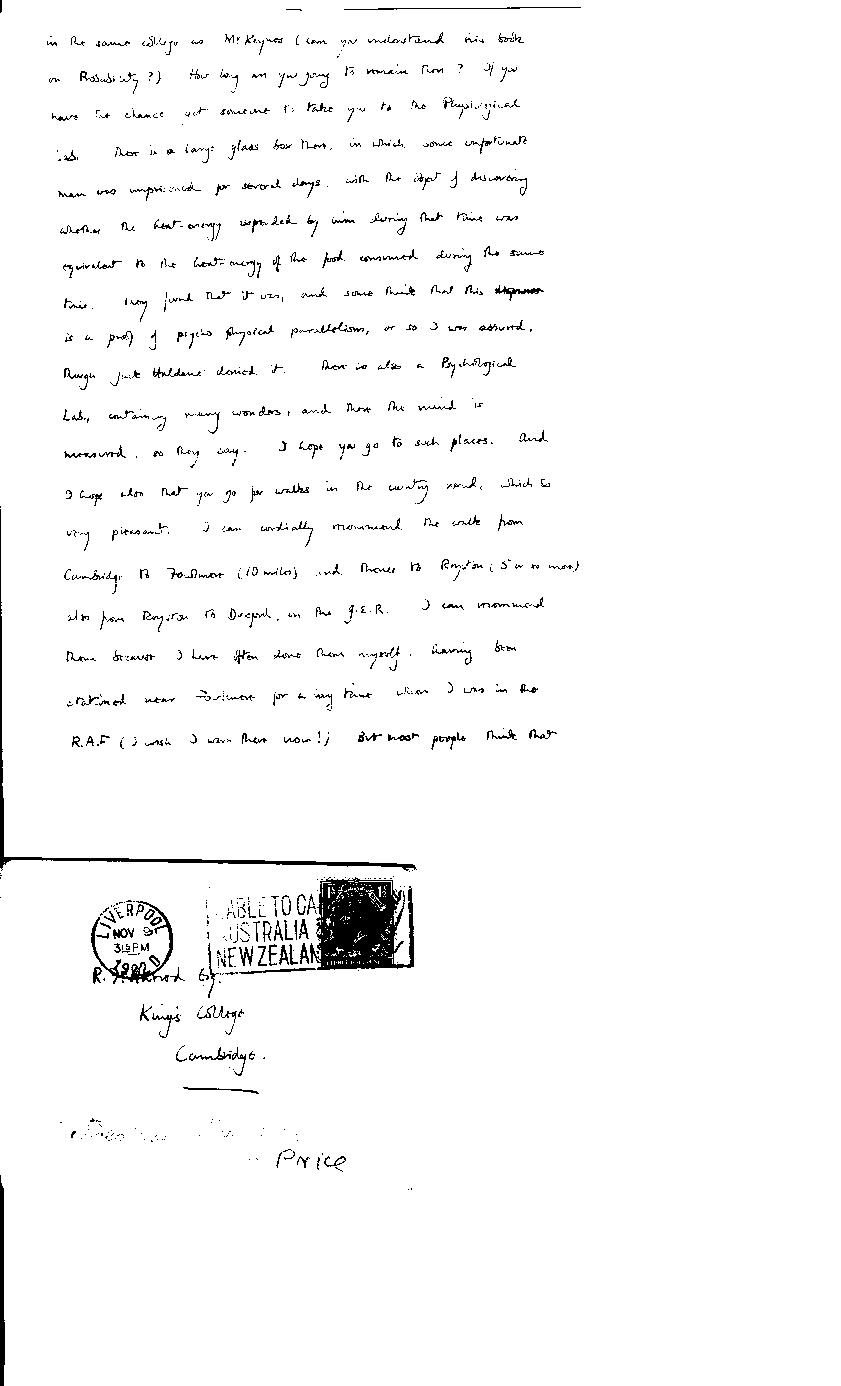 in the same college as Mr Keynes (can you understand his book
on Probability?) How long are you going to remain there? If you
have the chance get someone to take you to the Physiological
Lab. There is a large glass box there, in which some unfortunate
man was imprisoned for several days, with the object of discovering
whether the heat-energy expended by him during that time was
equivalent to the heat-energy of the food consumed during the same
time. They found that it was, and some think that this
is a proof of psycho physical parallelism, or so I was assured,
though Haldane denied it. There is also a Psychological
Lab., containing many wonders, and there the mind is
measured, so they say. I hope you go to such places. And
I hope also that you go for walks in the country round, which is
very pleasant. I can cordially recommend the walk from
Cambridge to Fowlmere (10 miles) and thence to Royston (5 or so more)
also from Royston to Duxford, on the G.E.R. I can recommend
them because I have often done them myself, having been
stationed near Fowlmere for a long time when I was in the
R.A.F (I wish I were there now!) But most people think that
LIVERPOOL
NOV
PM
ABLE TO CA
AUSTRALIA
NEW ZEALAN
R. Esq.
King's College
Cambridge.
Price